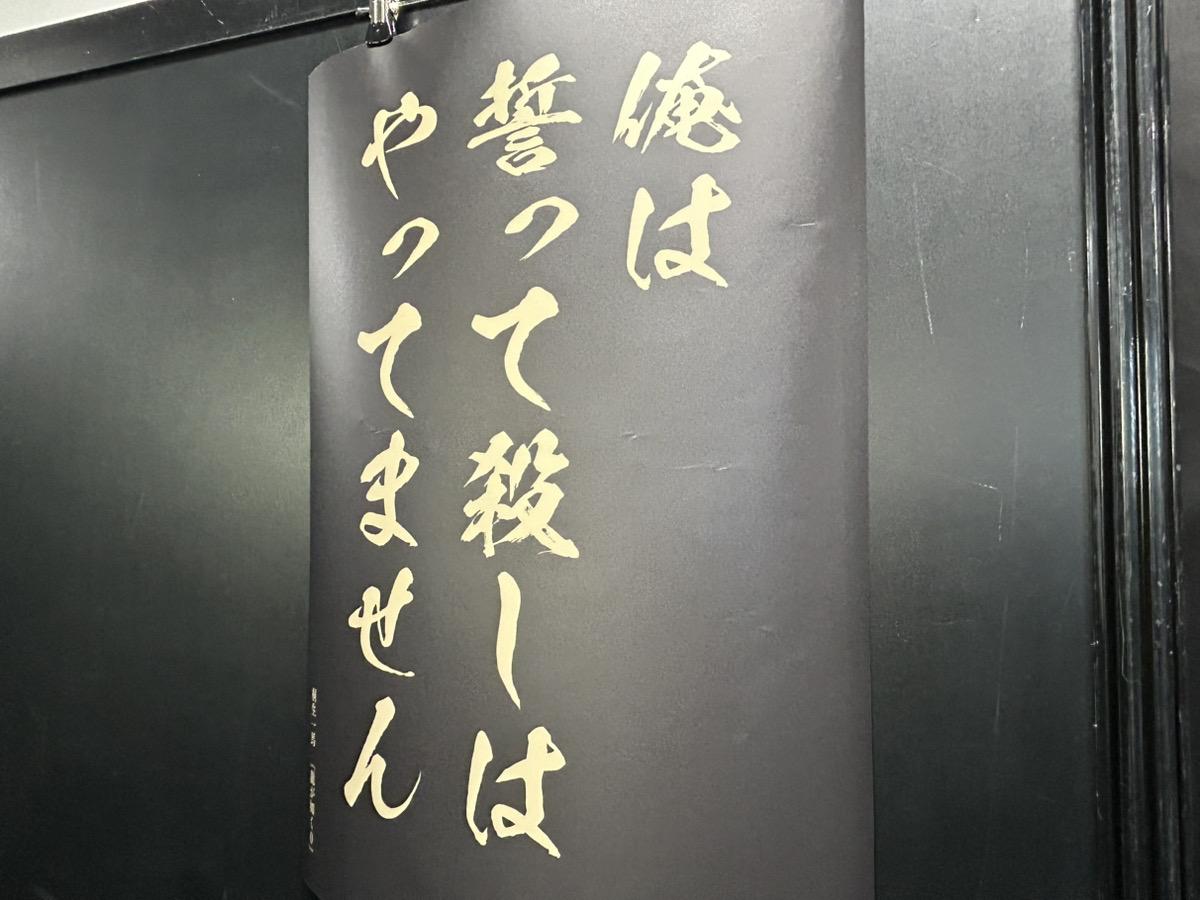 俺は
誓って殺しは
やってません